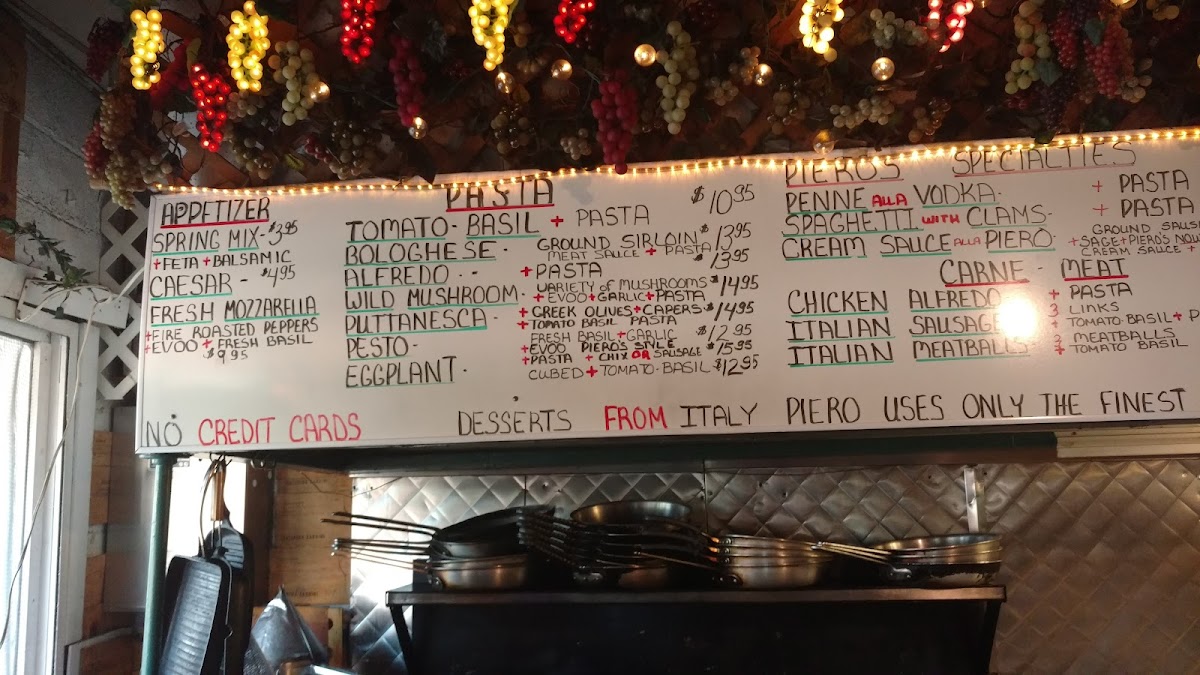 APPETIZER
SPRING MIX - $3.95
+ FETA + BALSAMIC
CAESAR - $4.95
FRESH MOZZARELLA
+ FIRE ROASTED PEPPERS
+ EVOO + FRESH BASIL
$9.95
PASTA
TOMATO - BASIL + PASTA $10.95
BOLOGHESE - GROUND SIRLOIN $13.95
MEAT SAUCE + PASTA
ALFREDO - - + PASTA $13.95
WILD MUSHROOM - VARIETY of MUSHROOMS $14.95
+ EVOO + GARLIC + PASTA
PUTTANESCA - + GREEK OLIVES + CAPERS $14.95
+ TOMATO BASIL PASTA
PESTO - FRESH BASIL + GARLIC $12.95
+ EVOO PIERO'S STYLE
+ PASTA + CHIX OR SAUSAGE $15.95
EGGPLANT - CUBED + TOMATO - BASIL $12.95
PIERO'S SPECIALTIES
PENNE ALLA VODKA - + PASTA
SPAGHETTI WITH CLAMS - + PASTA
CREAM SAUCE ALLA PIERO GROUND
+ SAGE + PIERO'S
CREAM SAUCE +
CARNE - MEAT
CHICKEN ALFREDO + PASTA
ITALIAN SAUSAGE 3 LINKS
+ TOMATO - BASIL + P
ITALIAN MEATBALLS - 3 MEATBALLS
+ TOMATO BASIL
NO CREDIT CARDS DESSERTS FROM ITALY PIERO USES ONLY THE FINEST